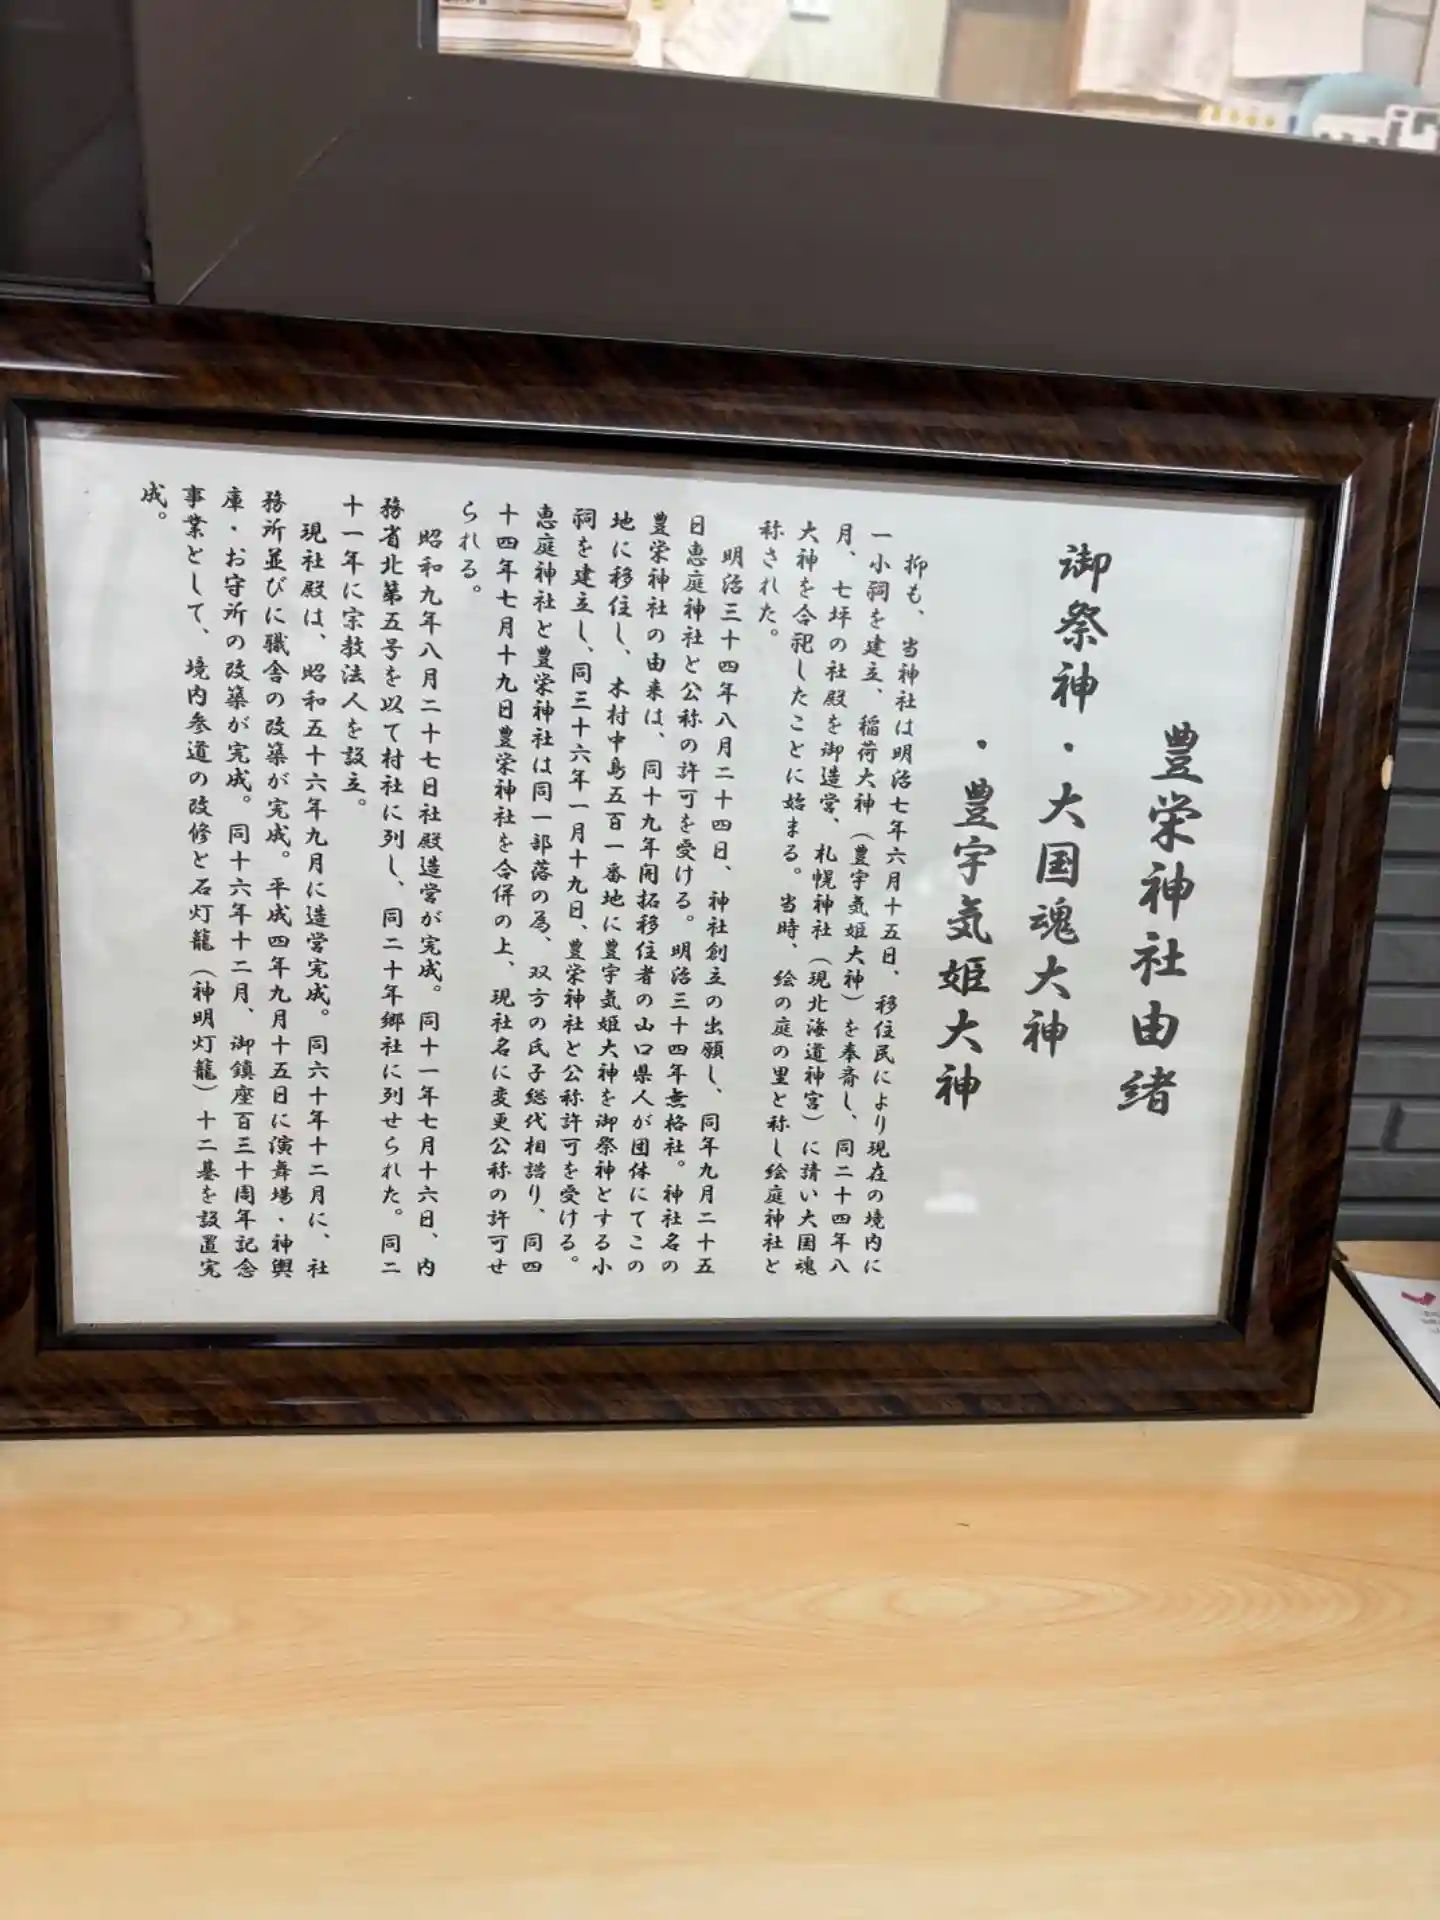 豊栄神社由緒
御祭神・大国魂大神
・豊宇気姫大神
抑も、当神社は明治七年六月十五日、移住民により現在の境内に
一小祠を建立、稲荷大神（豊宇気姫大神）を奉斎し、同二十四年八
月、七坪の社殿を御造営、札幌神社（現北海道神宮）に請い大国魂
大神を合祀したことに始まる。当時、絵の庭の里と称し絵庭神社と
称された。
明治三十四年八月二十四日、神社創立の出願し、同年九月二十五
日恵庭神社と公称の許可を受ける。明治三十四年無格社。神社名の
豊栄神社の由来は、同十九年開拓移住者の山口県人が団体にてこの
地に移住し、木村中島五百一番地に豊宇気姫大神を御祭神とする小
祠を建立し、同三十六年一月十九日、豊栄神社と公称許可を受ける。
恵庭神社と豊栄神社は同一部落の為、双方の氏子総代相諮り、同四
十四年七月十九日豊栄神社を合併の上、現社名に変更公称の許可せ
られる。
昭和九年八月二十七日社殿造営が完成。同十一年七月十六日、内
務省北第五号を以て村社に列し、同二十年郷社に列せられた。同二
十一年に宗教法人を設立。
現社殿は、昭和五十六年九月に造営完成。同六十年十二月に、社
務所並びに職舎の改築が完成。平成四年九月十五日に演舞場・神輿
庫・お守所の改築が完成。同十六年十二月、御鎮座百三十周年記念
事業として、境内参道の改修と石灯籠（神明灯籠）十二基を設置完
成。